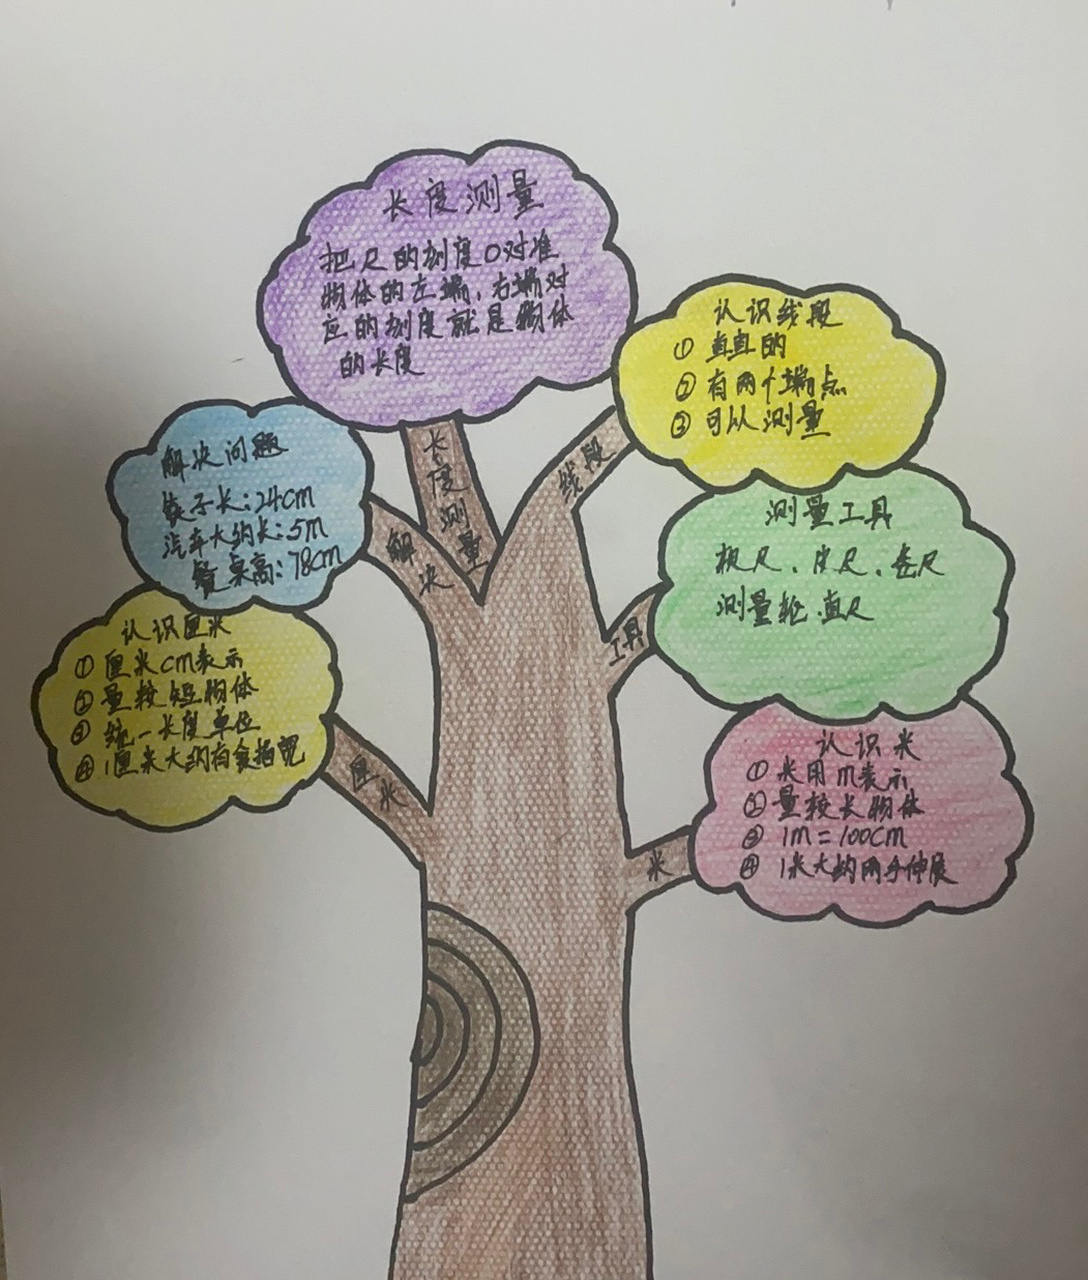 长度测量
把尺的刻度0对准
物体的左端,右端对
应的刻度就是物体
的长度
认识线段
① 直直的
② 有两个端点
③ 可以测量
解决问题
筷子长:24cm
汽车大约长:5m
餐桌高:78cm
测量工具
皮尺、卷尺
测量轮、直尺
认识厘米
① 厘米cm表示
② 量较短物体
③ 统一长度单位
④ 1厘米大约有食指宽
认识米
① 米用m表示
② 量较长物体
③ 1m=100cm
④ 1米大约两手伸展
长度测量
线段
解决
工具
厘米
米